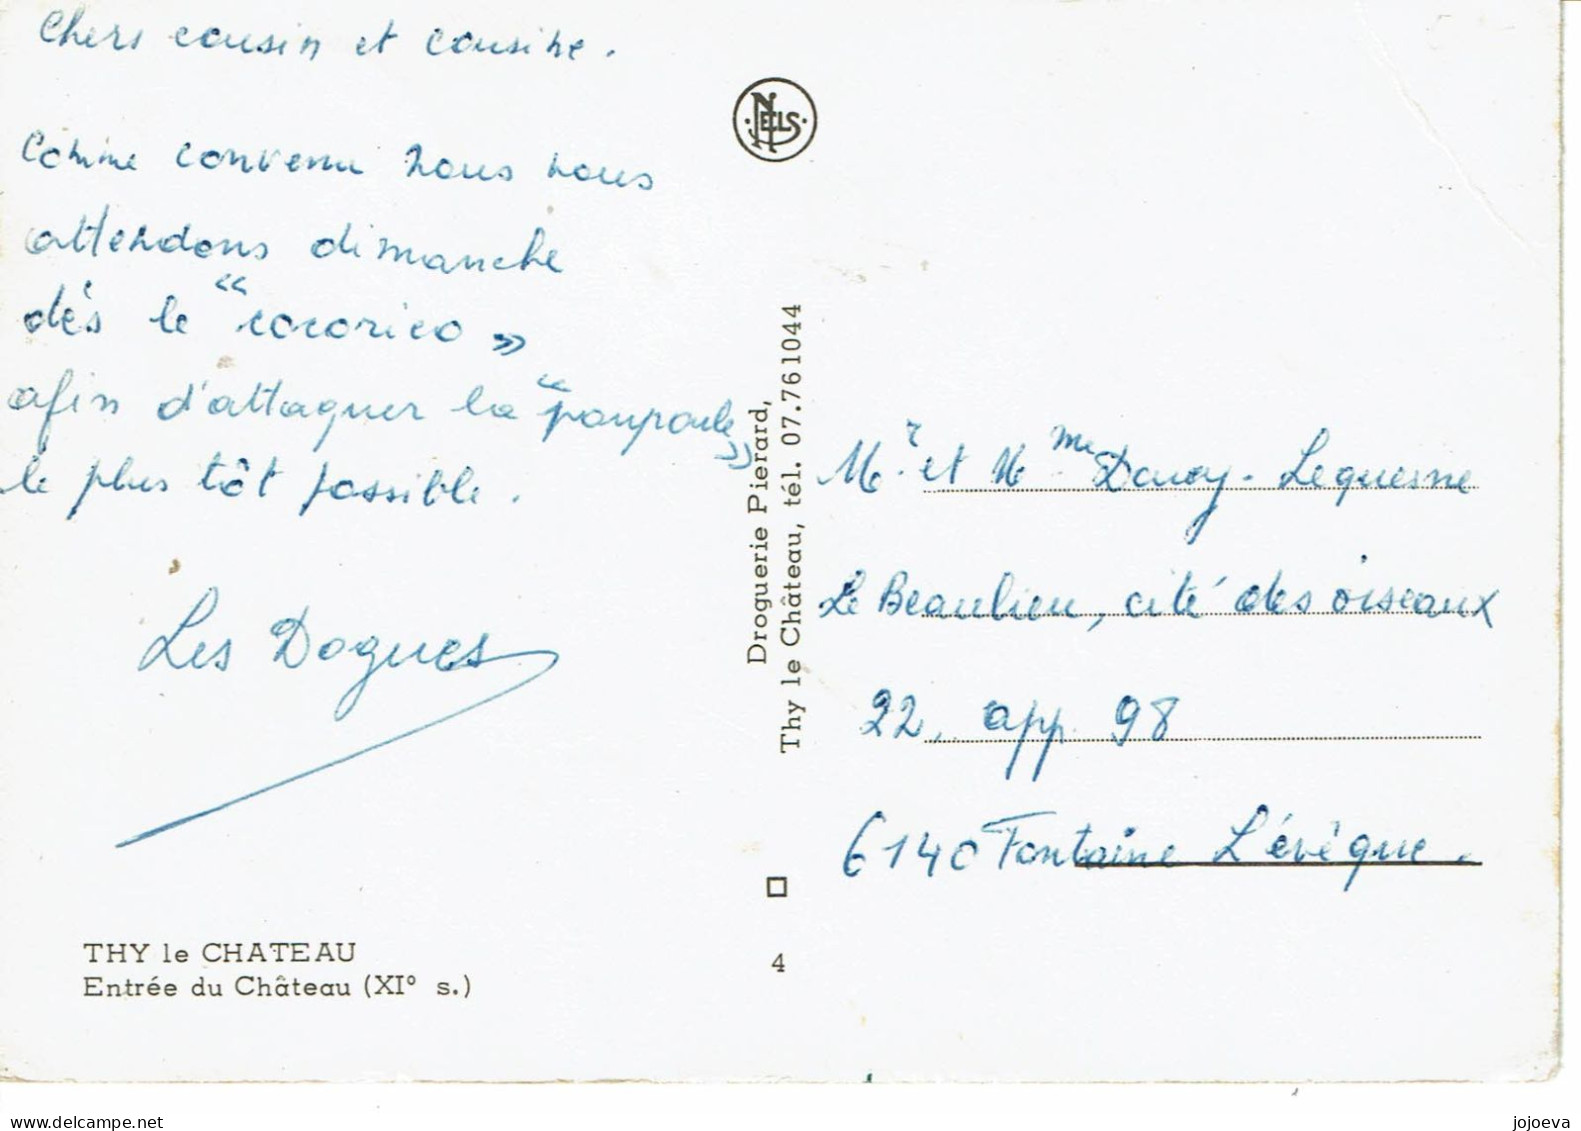 Chers cousin et cousine.
Comme convenu nous nous
attendons dimanche
dès le "cocorico"
afin d'attaquer la "poupoule"
le plus tôt possible.
Les Dogues
THY le CHATEAU
Entrée du Château (XIº s.)
NELS
Droguerie Pierard,
Thy le Château, tél. 07.761044
4
Mr et Mme Lequesne
Le Beaulieu, cité des oiseaux
22, app. 98
6140 Fontaine L'évêque.
delcampe.net
jojoeva